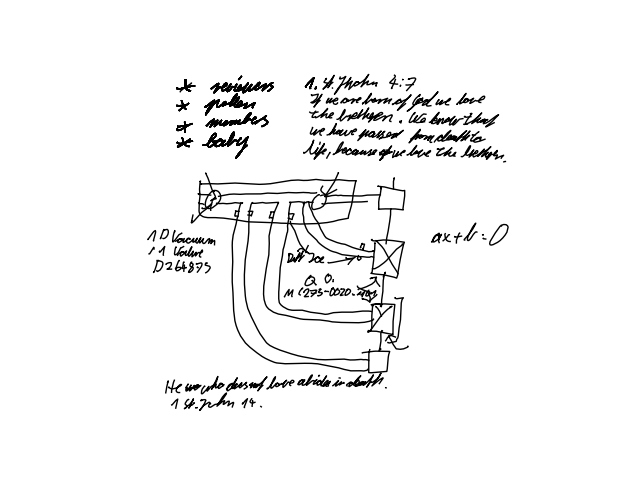 * reviewers
* pollen
* members
* baby
1. St. Jhohn 4:7
If we are born of God we love
the brethren. We know that
we have passed from death to
life, because of we love the brethren.
1 D Vacuum
11 Valve
D264875
ax+b=0
Q O.
M (275-0020-
He who does not love abides in death.
1 St. John 14.